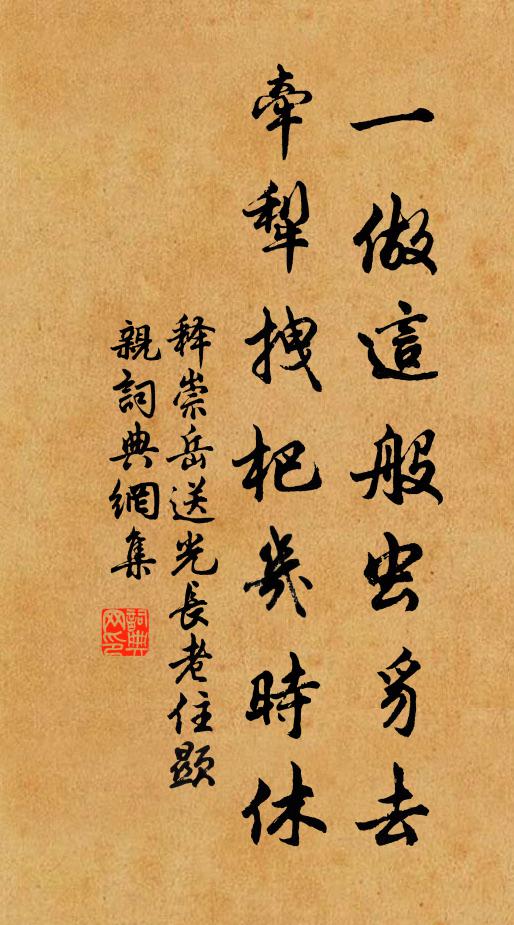 一做這般虫豸去
牽犁拽杷幾時休
释崇岳送光長老住顯
親詞典網集
詞典
网印